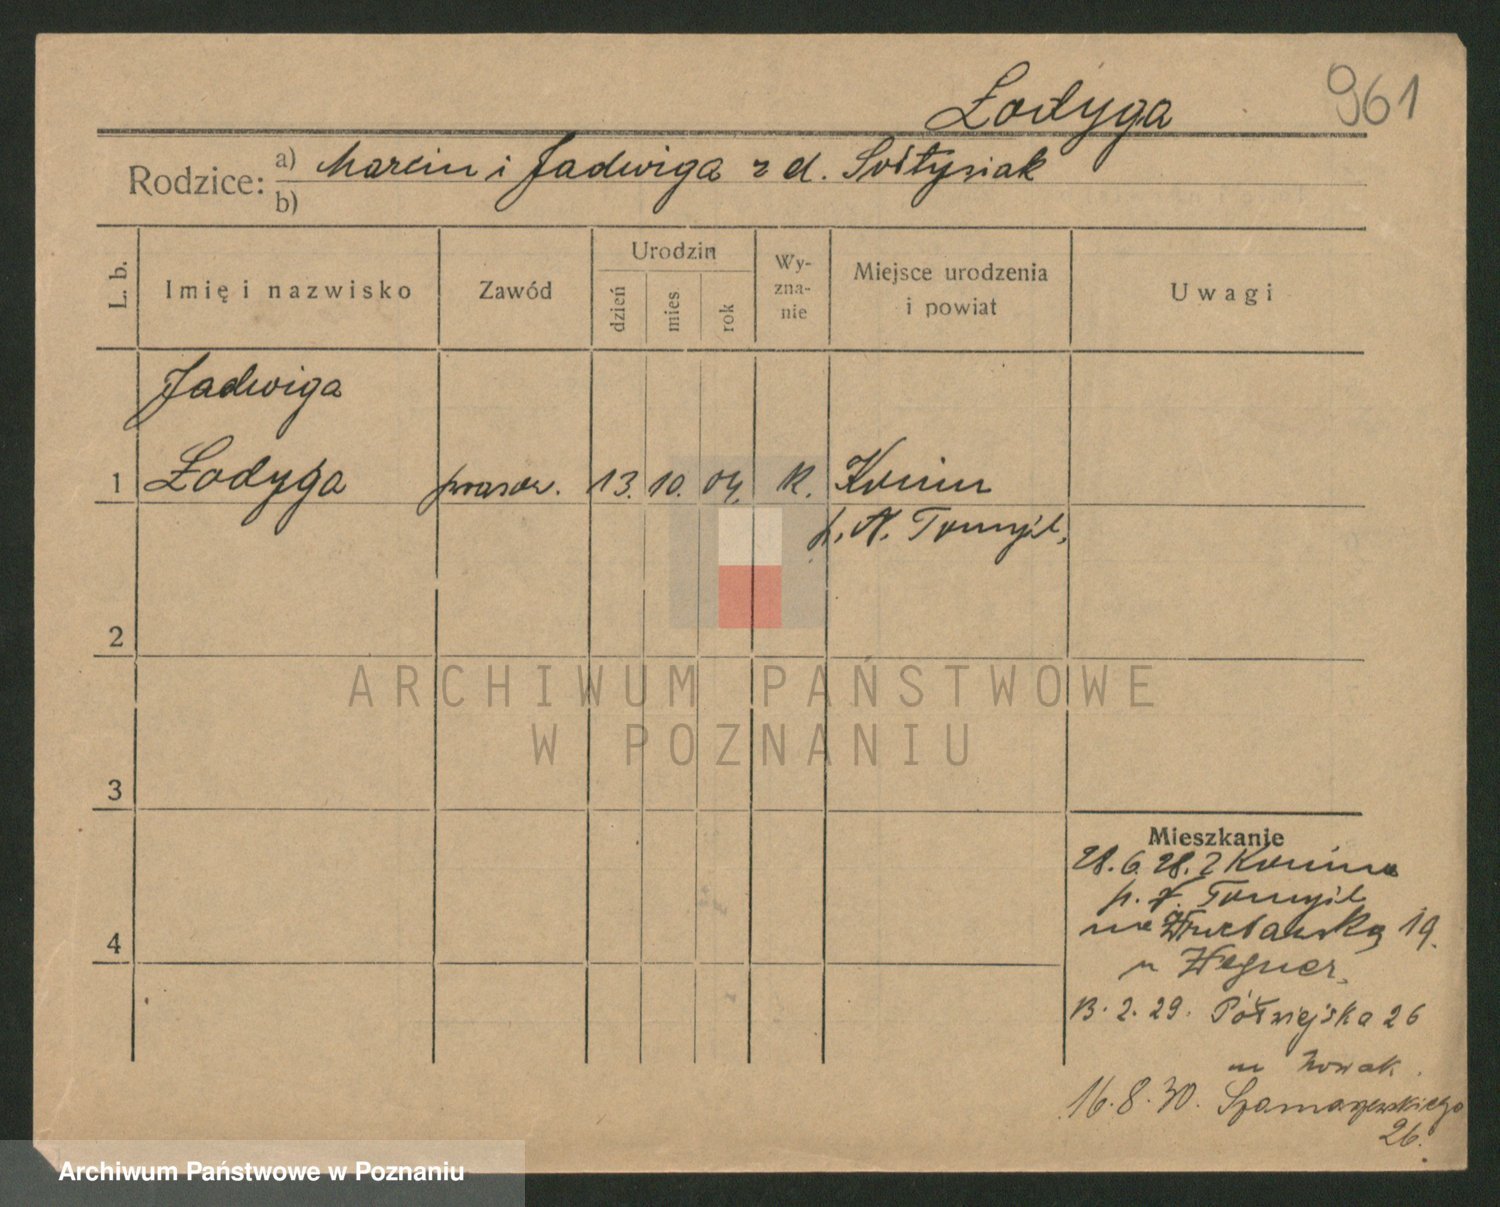 961
Łodyga
Rodzice: a) Marcin i Jadwiga z d. Sołtysiak
b)
L. b.
Imię i nazwisko
Zawód
Urodzin
dzień
mies
rok
Wy-
zna-
nie
Miejsce urodzenia
i powiat
Uwagi
Jadwiga
1 Łodyga prasow. 13. 10. 04. K. Konin
p. N. Tomyśl.
2
ARCHIWUM PAŃSTWOWE
W POZNANIU
3
Mieszkanie
28. 6. 28. z Konina
p. N. Tomyśl
19.
4
u Wegner.
13. 2. 29. Półwiejska 26
u Nowak.
16. 8. 30. Szamarzewskiego
26.
Archiwum Państwowe w Poznaniu